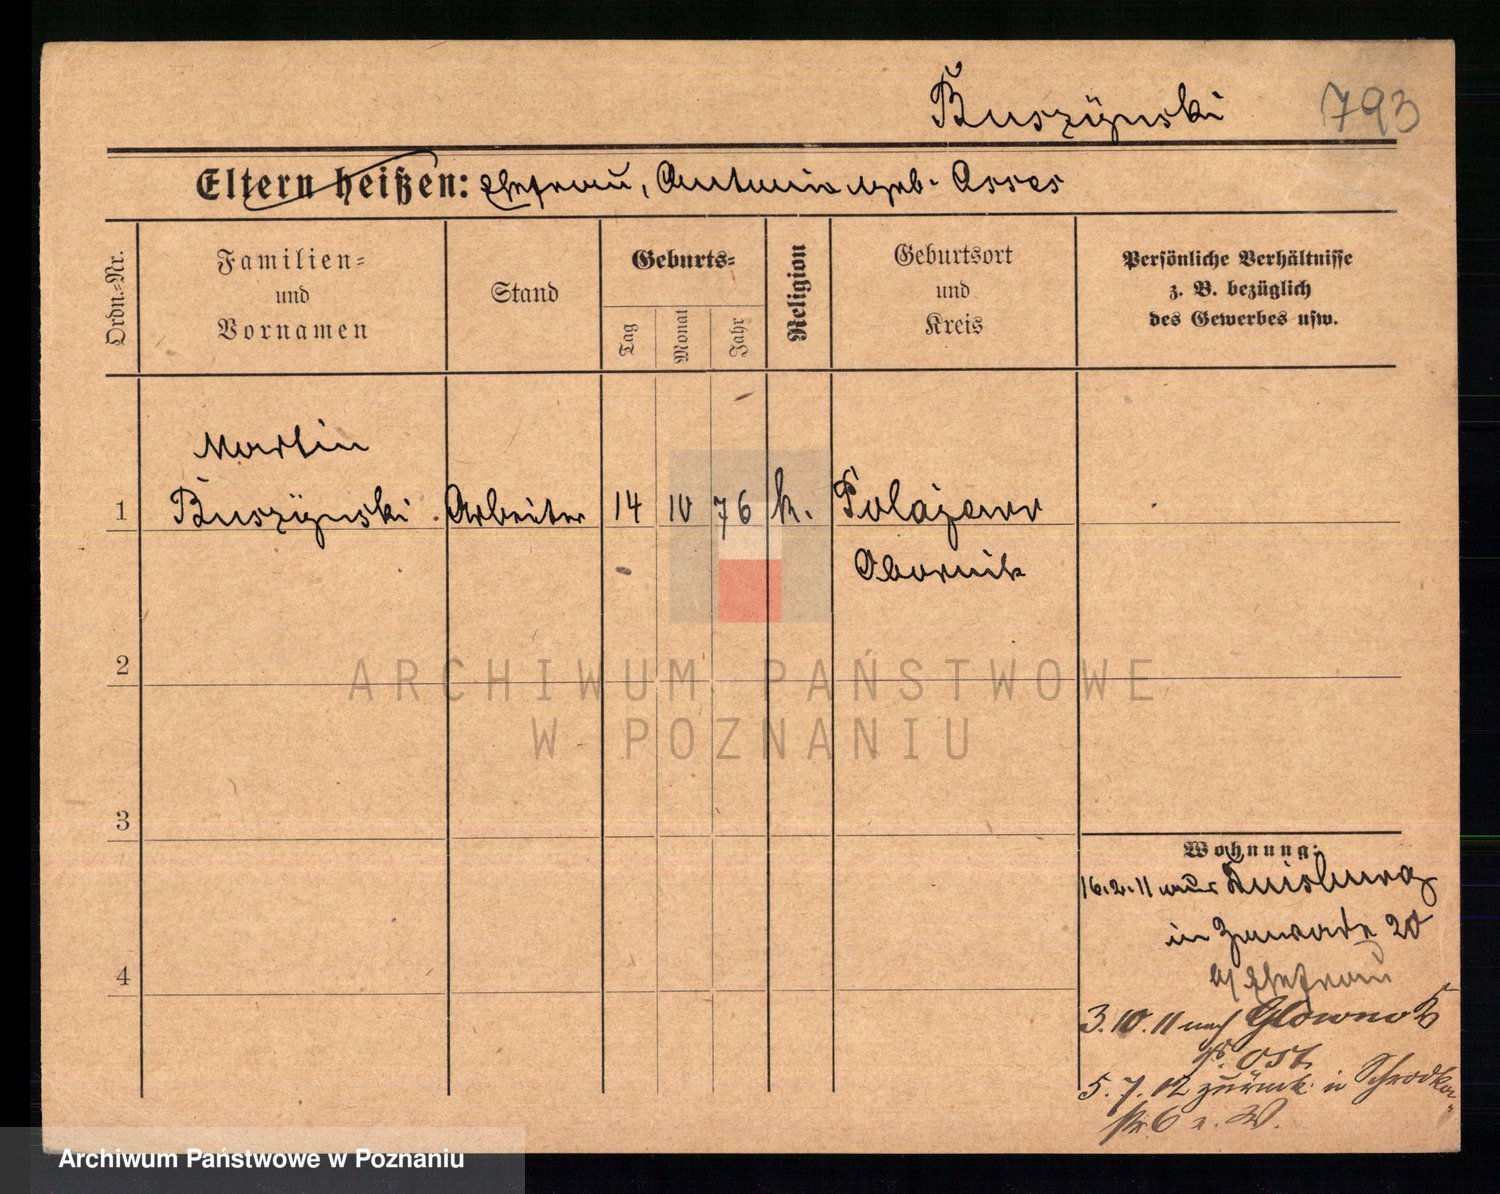 Buszÿnski 793
Eltern heißen: Ehefrau, Antonia geb. Asses
Ordn.-Nr.
Familien-
und
Vornamen
Stand
Geburts-
Tag
Monat
Jahr
Religion
Geburtsort
und
Kreis
Persönliche Verhältnisse
z. B. bezüglich
des Gewerbes usw.
Martin
1 Buszÿnski Arbeiter 14 10 76 k. Polajewo
Obornik
2
3
4
Wohnung:
16.2.11 aus Duisburg
in Zawade 20
b/ Ehefrau
3.10.11 nach Glowno K
Ps. Ost.
5.7.12 zurück in Schrodker
str. 6 z. W.
ARCHIWUM PAŃSTWOWE
W POZNANIU
Archiwum Państwowe w Poznaniu